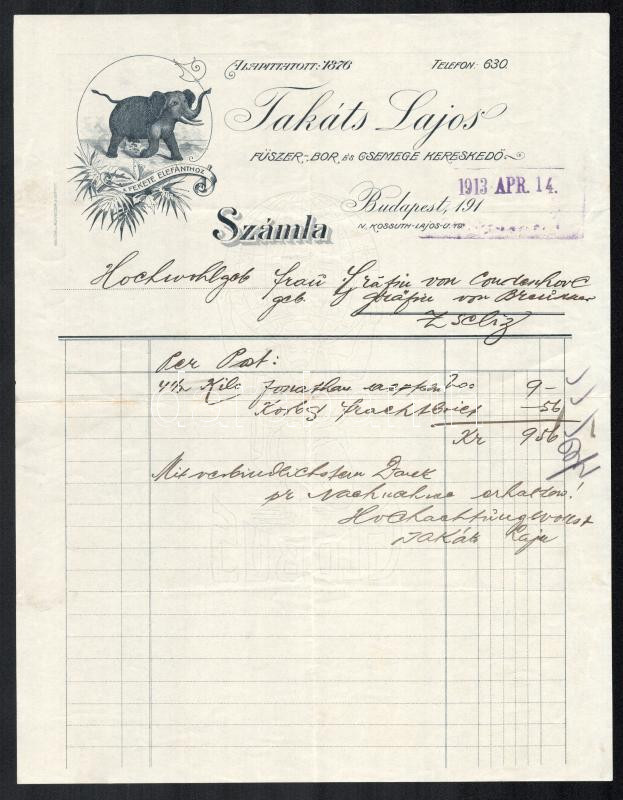 ALAPÍTTATOTT: 1876
TELEFON: 630.
Takáts Lajos
FŰSZER-, BOR ÉS CSEMEGE KERESKEDŐ
A FEKETE ELEFÁNTHOZ
1913 APR. 14.
Budapest, 191
Számla
N. KOSSUTH-LAJOS-U.
Hochwohlgeb Frau Gräfin von Coudenhove
geb Gräfin von Breünner
Zseliz
Per Post:
4½ Kilo Jonathan 2.00 9-
Korb & Frachtbrief -56
Kr 956
Mit verbindlichstem Dank
pr Nachnahme erhalten!
Hochachtungsvollst
Takáts Lajos